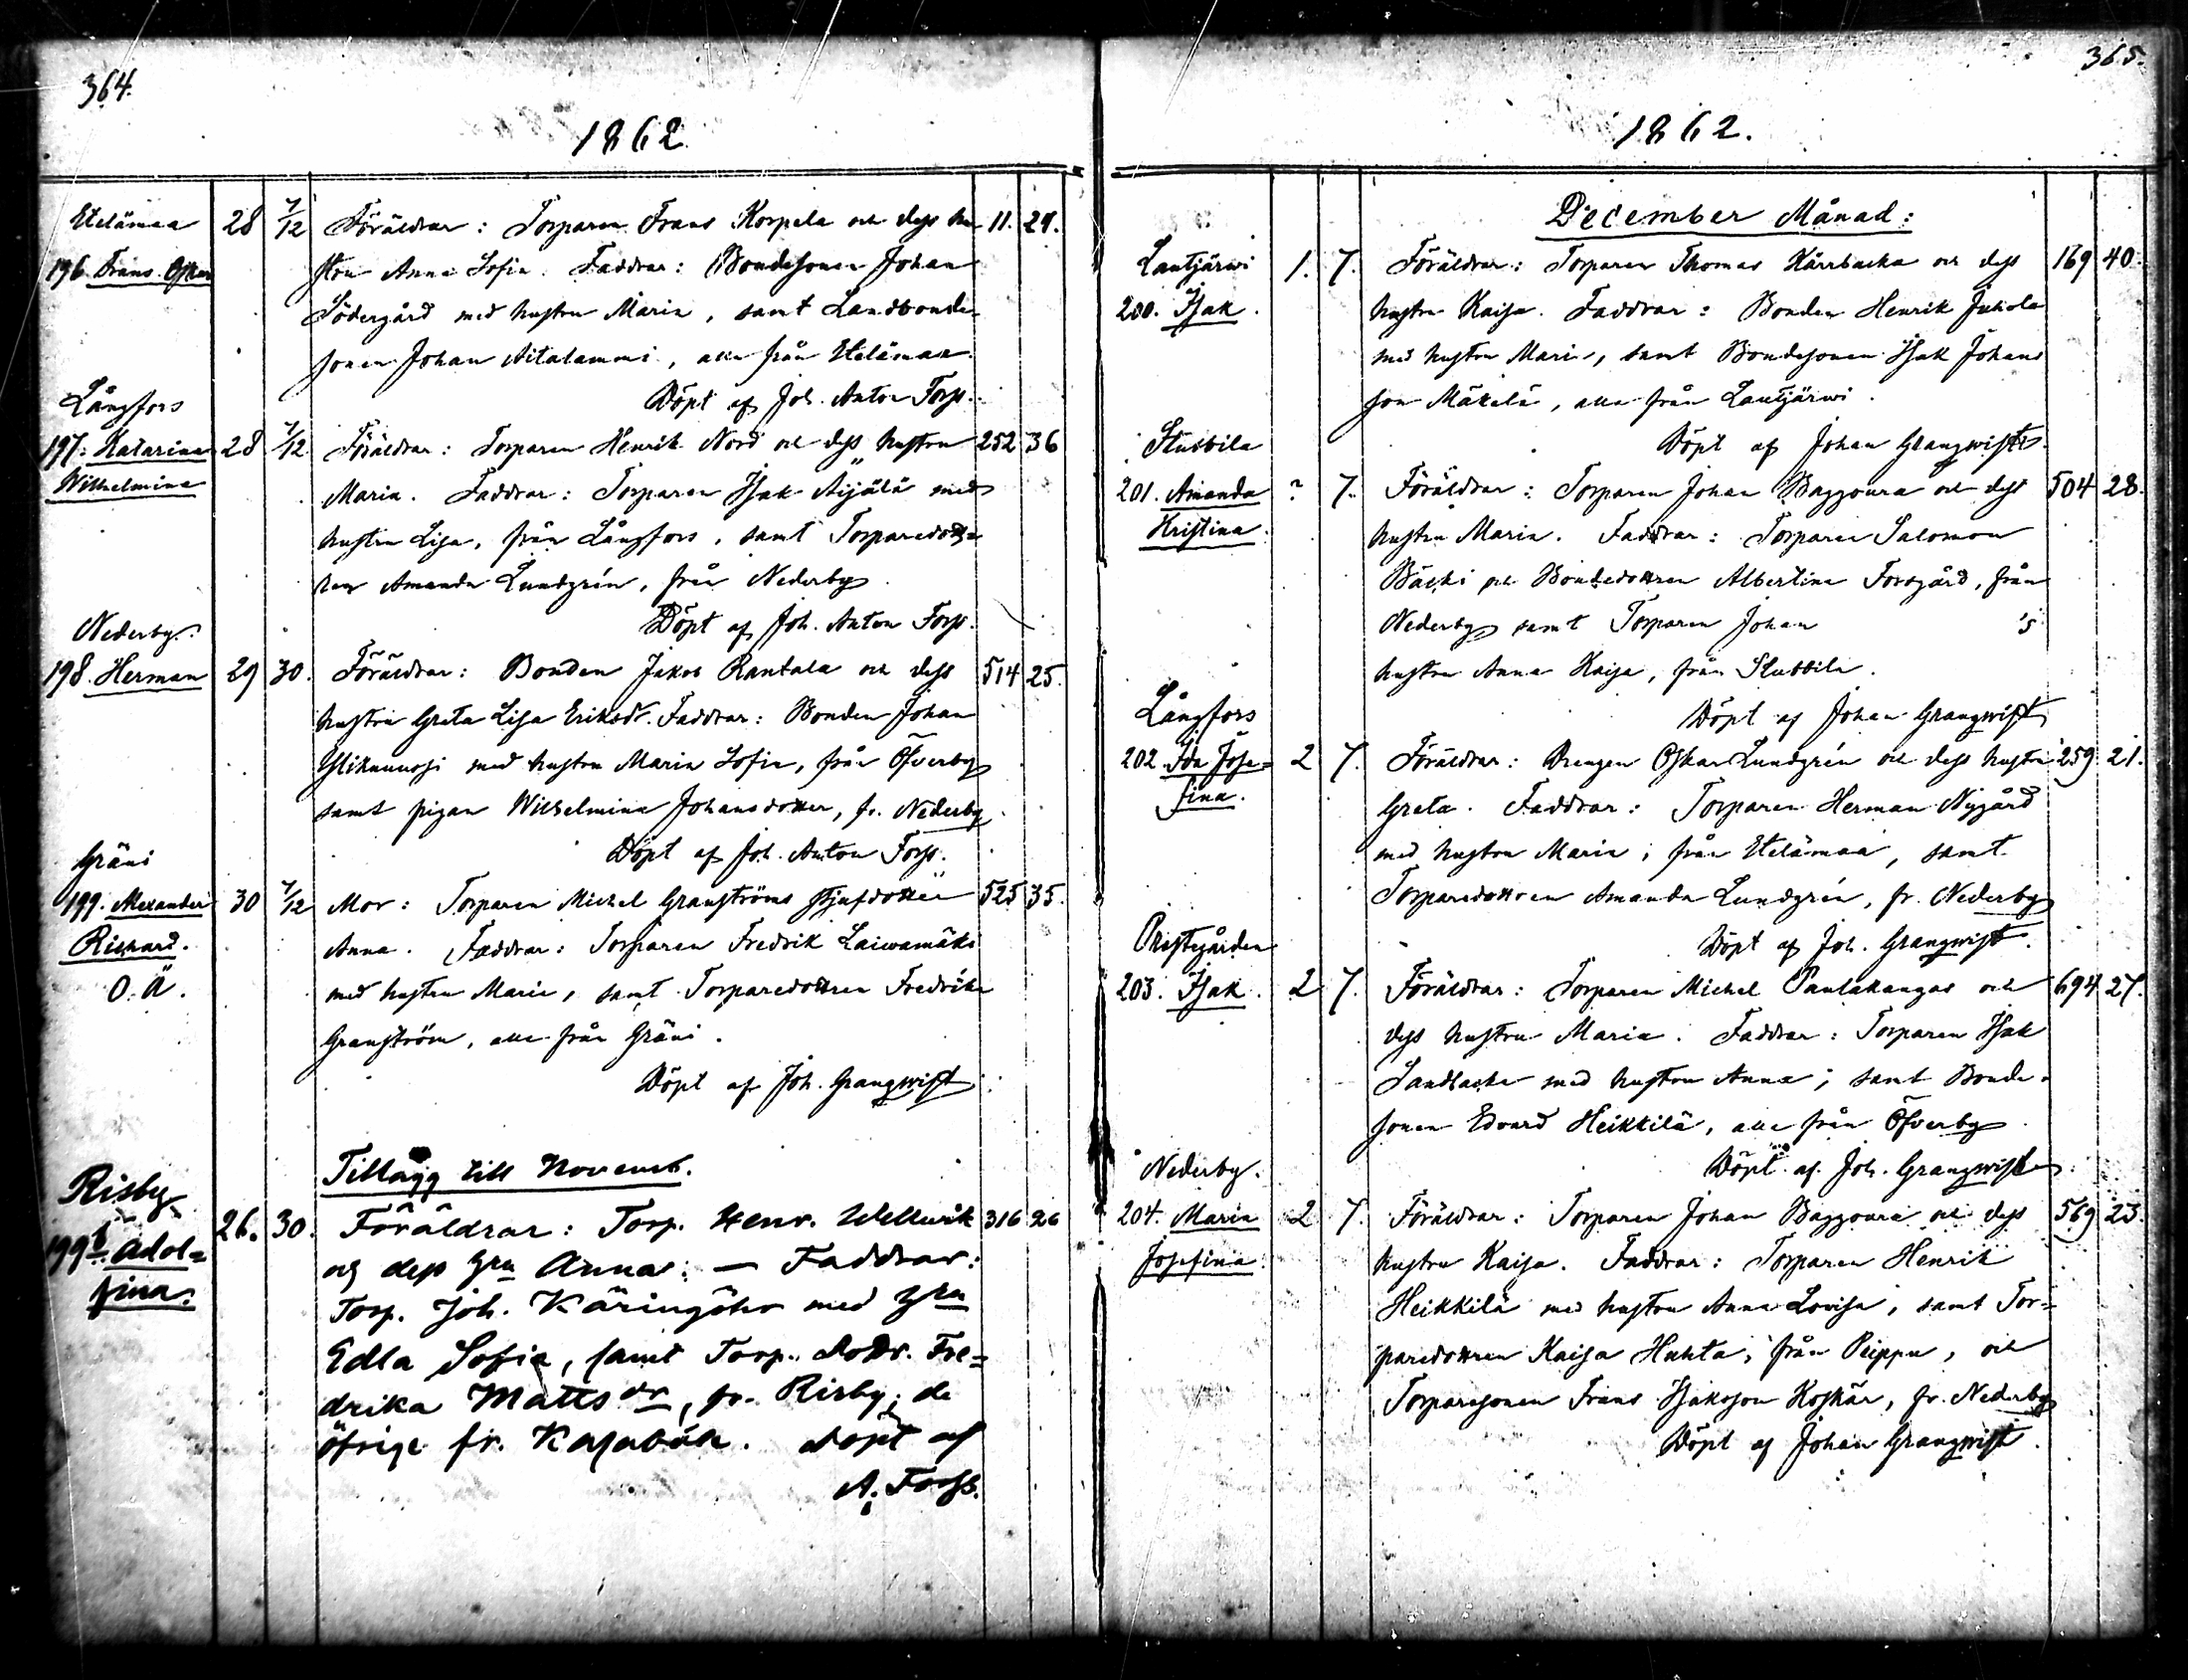 364.
1862.
Etelämaa 28 7/12 Föräldrar: Torparen Frans Korpela och dess hu- 11. 29.
196. Frans Oskar stru Anna Sofia. Faddrar: Bondesonen Johan
Södergård med hustru Maria, samt Landbonde-
sonen Johan Aitalammi, alla från Etelämaa.
Döpt af Joh. Anton Forss.
Långfors
197. Katarina 28 7/12 Föräldrar: Torparen Henrik Nord och dess hustru 252 36
Wilhelmina
Maria. Faddrar: Torparen Isak Äijälä med
hustru Lisa, från Långfors, samt Torparedott-
ren Amanda Lundgrén, från Nederby
Döpt af Joh. Anton Forss.
Nederby.
198. Herman 29 30. Föräldrar: Bonden Jakob Rantala och dess 514 25.
hustru Greta Lisa Eriksdr. Faddrar: Bonden Johan
Ylikannussi med hustru Maria Sofia, från Öfverby
samt pigan Wilhelmina Johansdotter, fr. Nederby
Döpt af Joh. Anton Forss.
Gräni
199. Alexander 30 7/12 Mor: Torparen Michel Granströms styfdotter 525 35.
Richard.
Anna. Faddrar: Torparen Fredrik Laiwamäki
O. Ä. med hustru Maria, samt Torparedottren Fredrika
Granström, alla från Gräni.
Döpt af Joh. Grangwist
Tillägg till Novemb.
Risby
199b. Adol= 26. 30. Föräldrar: Torp. Henr. Wellwik 316 26
fina.
och dess Hru Anna. — Faddrar:
Torp. Joh. Käringöhr med Hru
Edla Sofia, samt Torp. Dottr. Fre=
drika Mattsdr, fr. Risby; de
öfriga fr. Kasaböle. Döpt af
A. Forss.
365.
1862.
December Månad:
Lantjärwi 1. 7. Föräldrar: Torparen Thomas Kärrbacka och dess 169 40.
200. Isak. hustru Kaisa. Faddrar: Bonden Henrik Juhola
med hustru Maria, samt Bondesonen Isak Johans
son Mäkelä, alla från Lantjärwi.
Döpt af Johan Grangwist.
Stubbila
201. Amanda ? 7. Föräldrar: Torparen Johan Baggoura och dess 504 28.
Kristina. hustru Maria. Faddrar: Torparen Salomon
Bäcki och Bondedottren Albertina Forsgård, från
Nederby samt Torparen Johan 's
hustru Anna Kaisa, från Stubbila.
Döpt af Johan Grangwist
Långfors
202. Ida Jose= 2 7. Föräldrar: Drengen Oskar Lundgrén och dess hustru 259 21.
fina. Greta. Faddrar: Torparen Herman Nygård
med hustru Maria, från Etelämaa, samt
Torparedottren Amanda Lundgrén, fr. Nederby
Döpt af Joh. Grangwist.
Prestegården
203. Isak. 2 7. Föräldrar: Torparen Michel Pantakangas och 694 27.
dess hustru Maria. Faddrar: Torparen Isak
Sandbacka med hustru Anna, samt Bonde-
sonen Edvard Heikkilä, alla från Öfverby
Döpt af Joh. Grangwist
Nederby.
204. Maria 2 7. Föräldrar: Torparen Johan Baggoura och dess 569 23.
Josefina. hustru Kaisa. Faddrar: Torparen Henrik
Heikkilä med hustru Anna Lovisa, samt Tor=
paredottren Kaisa Huhta, från Peippu, och
Torparesonen Frans Isaksson Koskär, fr. Nederby
Döpt af Johan Grangwist.